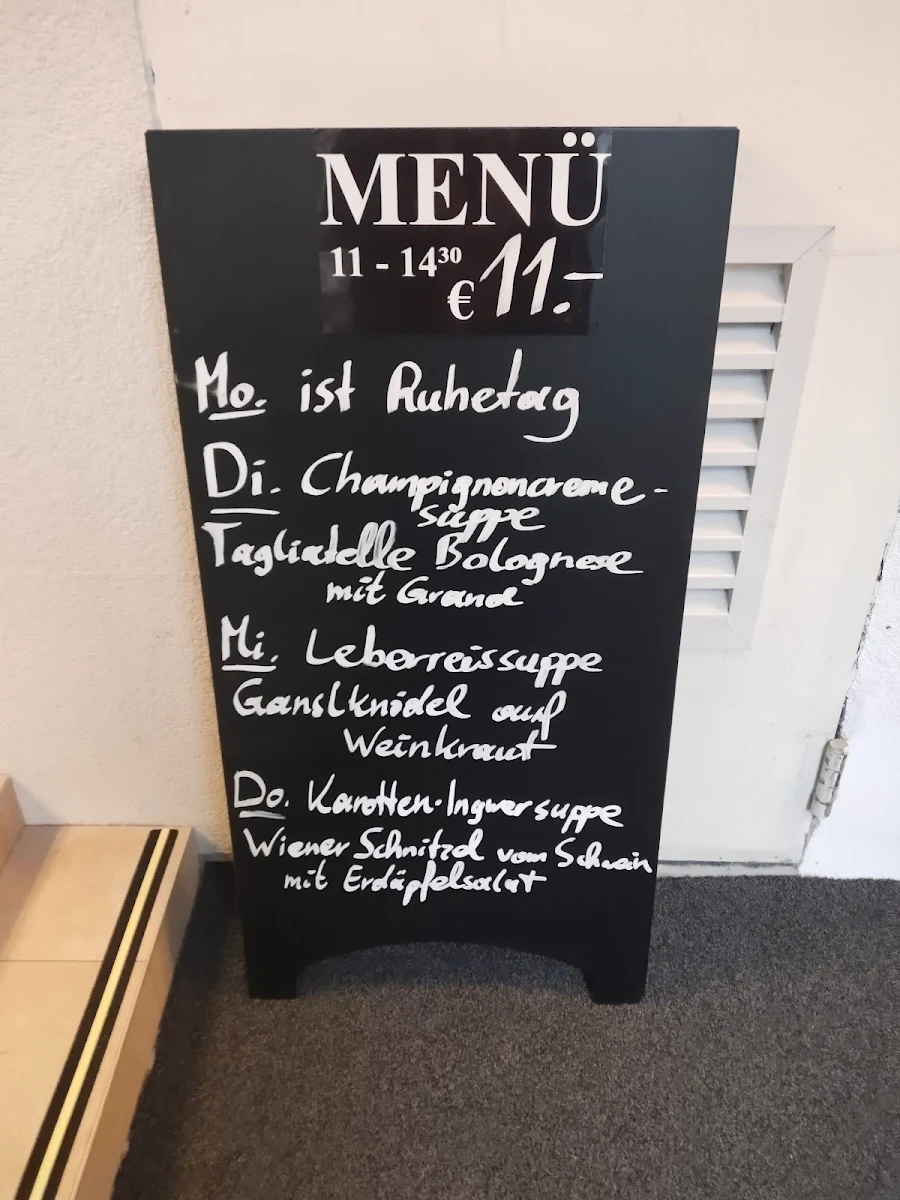 MENÜ
11 - 14³⁰
€ 11.-
Mo. ist Ruhetag
Di. Champignoncreme-
suppe
Tagliatelle Bolognese
mit Grana
Mi. Leberreissuppe
Ganslknödel auf
Weinkraut
Do. Karotten-Ingwersuppe
Wiener Schnitzel vom Schwein
mit Erdäpfelsalat